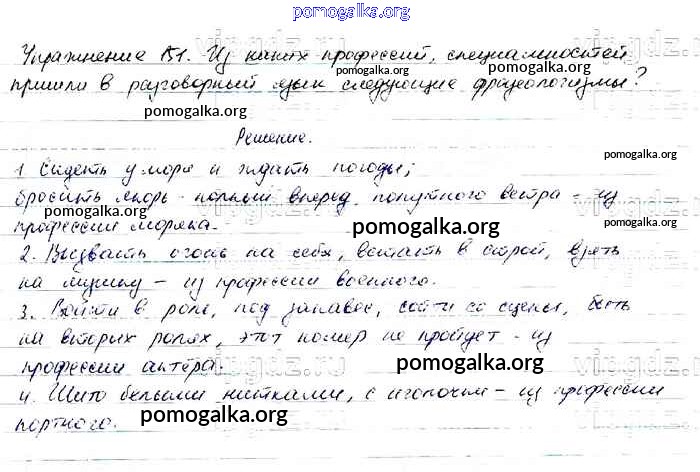 pomogalka.org
Упражнение 151. Из каких профессий, специальностей
pomogalka.org
пришли в разговорный язык следующие фразеологизмы?
pomogalka.org
Решение.
1. Сидеть у моря и ждать погоды;
pomogalka.org
бросить якорь - полный вперед, попутного ветра - из
pomogalka.org
профессии моряка.
pomogalka.org
pomogalka.org
2. Вызвать огонь на себя, встать в строй, взять
на мушку - из профессии военного.
3. Войти в роль, под занавес, сойти со сцены, быть
pomogalka.org
на вторых ролях, этот номер не пройдет - из
профессии актёра.
pomogalka.org
4. Шито белыми нитками, с иголочки - из профессии
портного.
pomogalka.org
vipgdz.ru